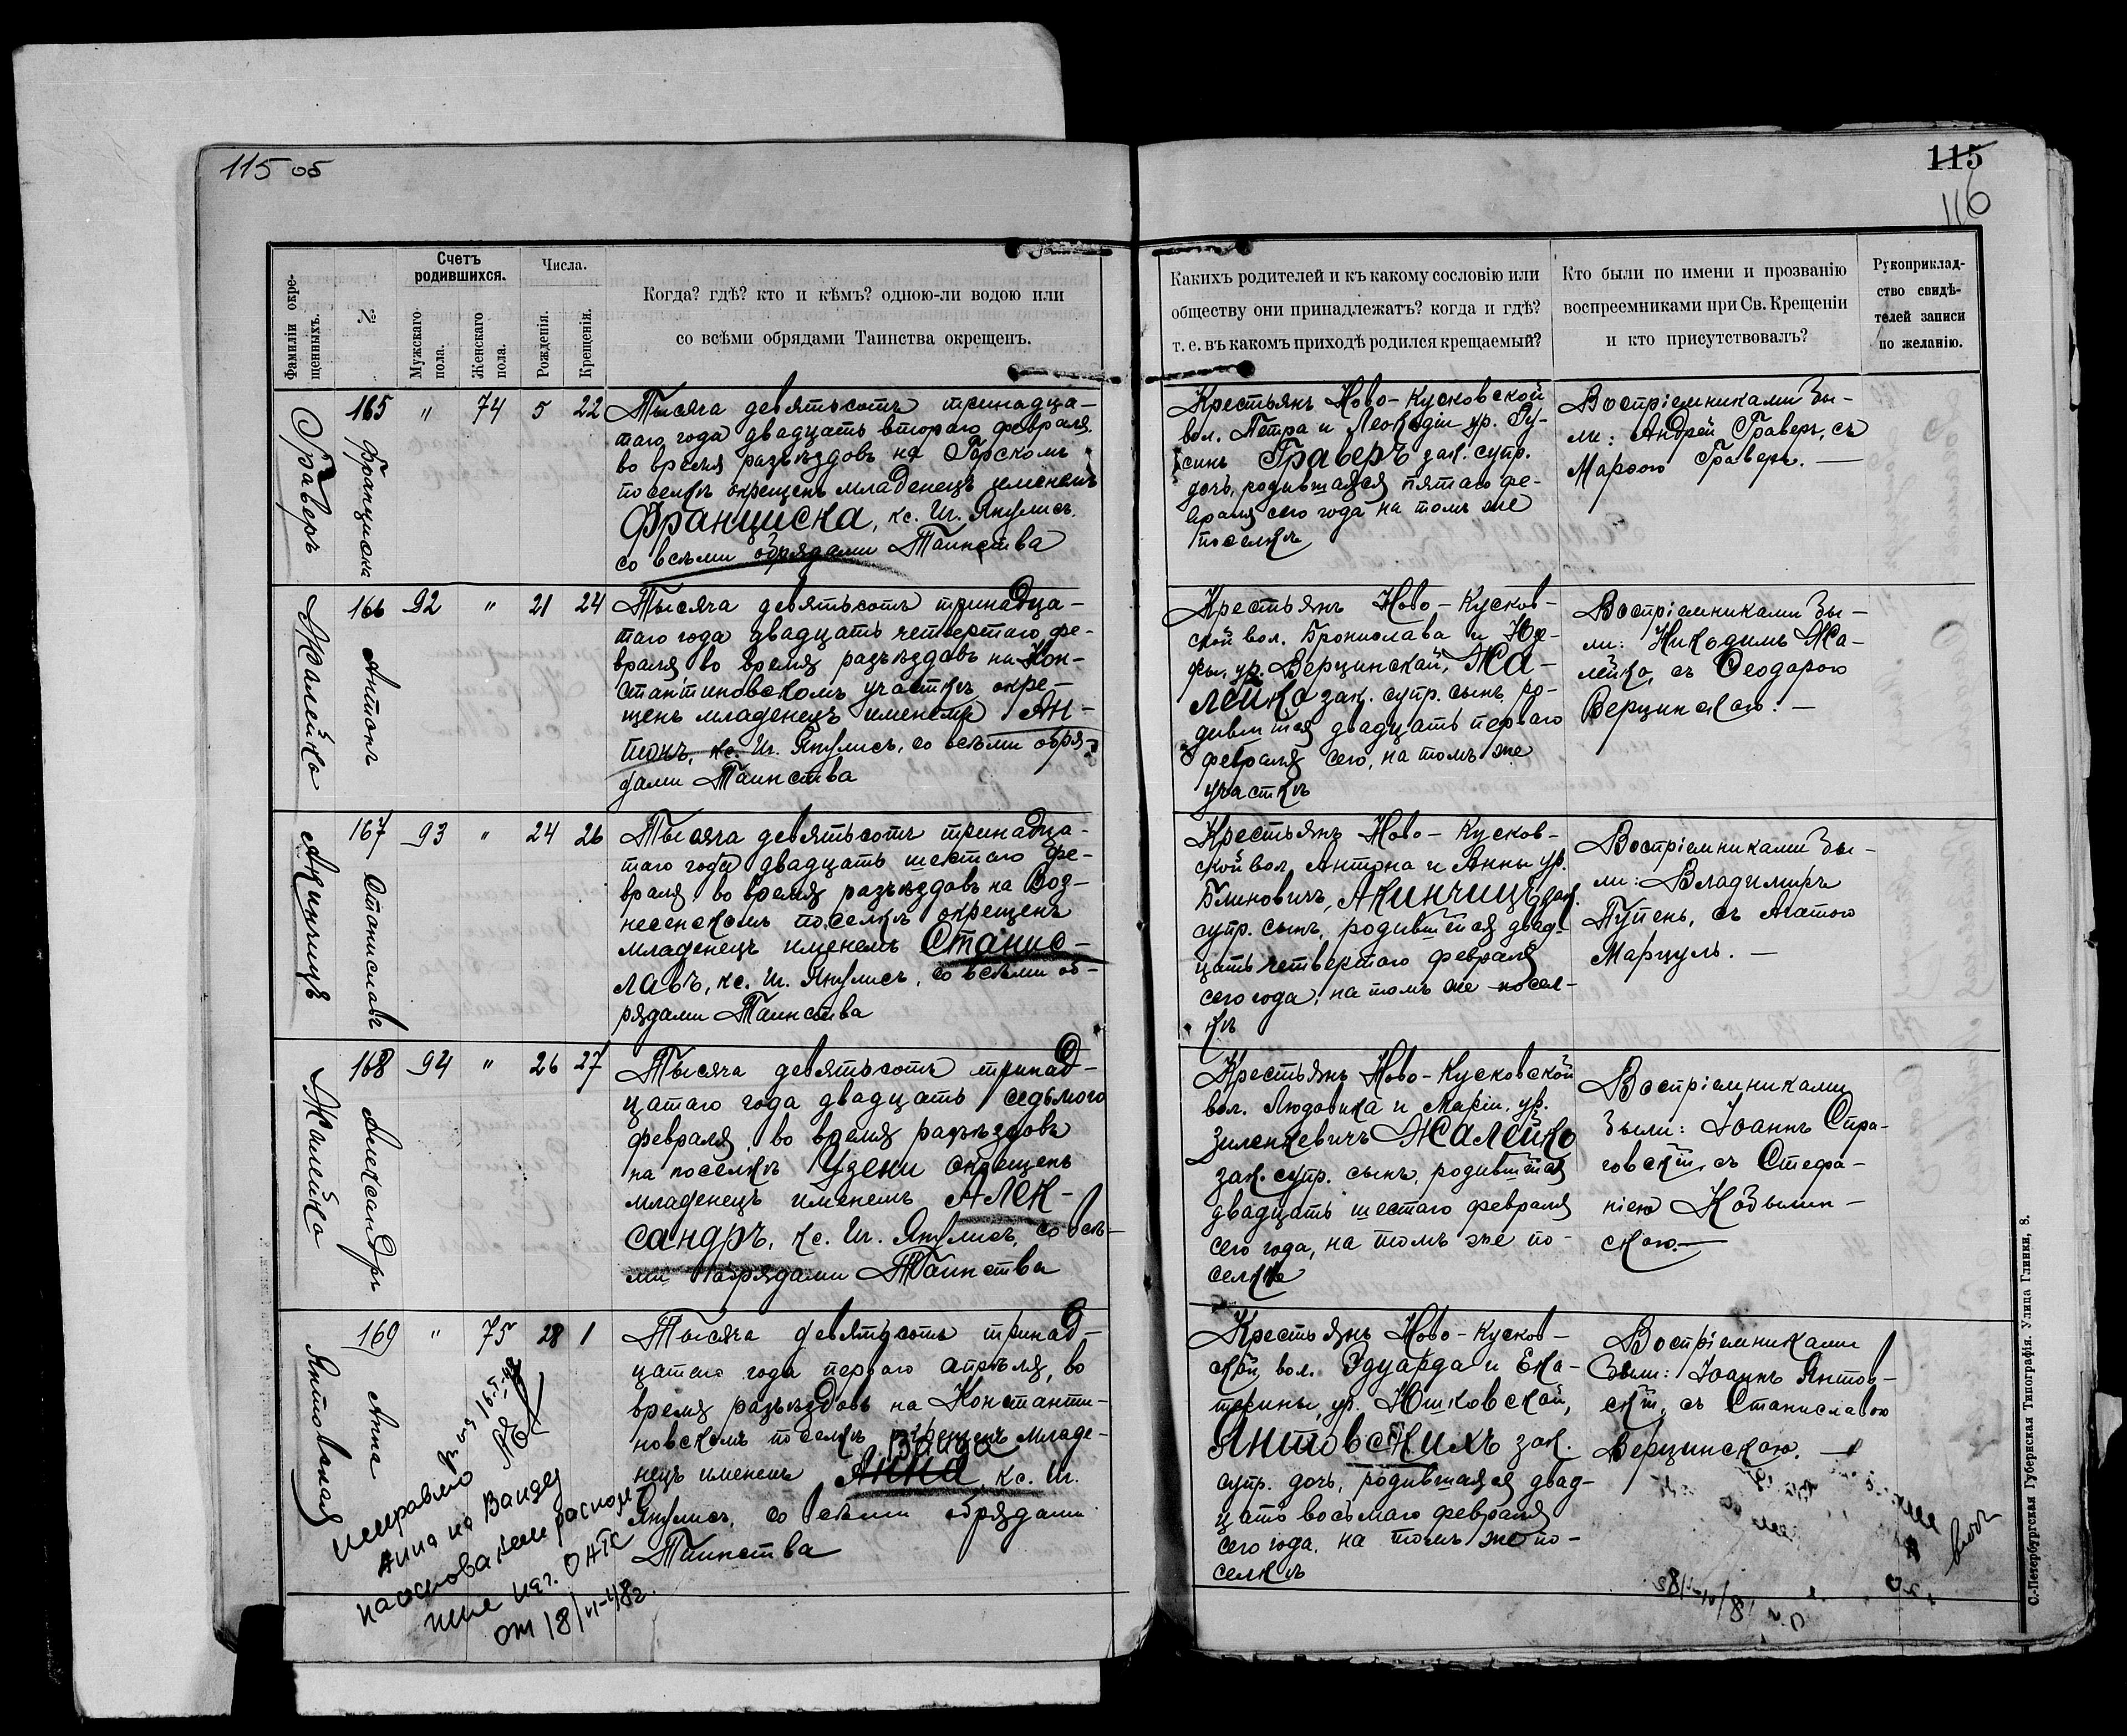 115 об
115
116
Фамиліи окре-
щенныхъ.
№
Счетъ
родившихся.
Мужскаго
пола.
Женскаго
пола.
Числа.
Рожденія.
Крещенія.
Когда? гдѣ? кто и кѣмъ? одною-ли водою или
со всѣми обрядами Таинства окрещенъ.
Какихъ родителей и къ какому сословію или
обществу они принадлежатъ? когда и гдѣ?
т. е. въ какомъ приходѣ родился крещаемый?
Кто были по имени и прозванію
воспреемниками при Св. Крещеніи
и кто присутствовалъ?
Рукоприклад-
ство свидѣ-
телей записи
по желанію.
Граверъ
165 Франциска
" 74 5 22
Тысяча девятьсотъ тринадца-
таго года двадцать втораго февраля
во время разъѣздовъ на Гарскомъ
поселкѣ окрещенъ младенецъ именемъ
Франциска, кс. Иг. Янулисъ,
со всѣми обрядами Таинства
Крестьянъ Ново-Кусковской
вол. Петра и Леокадіи ур. Гу-
синъ Граверъ зак. супр.
дочь, родившаяся пятаго фе-
враля сего года на томъ же
поселкѣ
Воспріемниками бы-
ли: Андрей Граверъ, съ
Марѳою Граверъ. —
Жалейко
166 Антонъ
92 " 21 24
Тысяча девятьсотъ тринадца-
таго года двадцать четвертаго фе-
враля во время разъѣздовъ на Кон-
стантиновскомъ участкѣ окре-
щенъ младенецъ именемъ Ан-
тонъ, кс. Иг. Янулисъ, со всѣми обря-
дами Таинства
Крестьянъ Ново-Кусков-
ской вол. Бронислава и Юзе-
фы, ур. Верцинской, Жа-
лейко зак. супр. сынъ, ро-
дившійся двадцать перваго
февраля сего, на томъ же
участкѣ
Воспріемниками бы-
ли: Никодимъ Жа-
лейко, съ Ѳеодорою
Верцинскою. —
Акинчицъ
167 Станиславъ
93 " 24 26
Тысяча девятьсотъ тринадца-
таго года двадцать шестаго фе-
враля во время разъѣздовъ на Воз-
несенскомъ поселкѣ окрещенъ
младенецъ именемъ Станис-
лавъ, кс. Иг. Янулисъ, со всѣми об-
рядами Таинства
Крестьянъ Ново-Кусков-
ской вол. Антона и Анны ур.
Блиновичъ, Акинчицъ зак.
супр. сынъ, родившійся двад-
цать четвертаго февраля
сего года, на томъ же посел-
кѣ
Воспріемниками бы-
ли: Владимиръ
Пупень, съ Агатою
Марцуль. —
Жалейко
168 Александръ
94 " 26 27
Тысяча девятьсотъ тринад-
цатаго года двадцать седьмого
февраля во время разъѣздовъ
на поселкѣ Узени окрещенъ
младенецъ именемъ Алек-
сандръ, кс. Иг. Янулисъ, со всѣ-
ми обрядами Таинства
Крестьянъ Ново-Кусковской
вол. Людовика и Маріи, ур.
Зиленкевичъ Жалейко
зак. супр. сынъ, родившійся
двадцать шестаго февраля
сего года, на томъ же по-
селкѣ
Воспріемниками
были: Іоаннъ Стра-
говскій, съ Стефа-
ніею Кобылин-
скою. —
Янтовская
169 Анна
" 75 28 1
Тысяча девятьсотъ тринад-
цатаго года перваго апрѣля, во
время разъѣздовъ на Константи-
новскомъ поселкѣ окрещенъ младе-
Ванда
нецъ именемъ Анна, кс. Иг.
Янулисъ, со всѣми обрядами
Таинства
Крестьянъ Ново-Кусков-
ской вол. Эдуарда и Ека-
терины, ур. Юшковской,
Янтовскихъ зак.
супр. дочь, родившаяся двад-
цать восьмаго февраля
сего года, на томъ же по-
селкѣ
Воспріемниками
были: Іоаннъ Янтов-
скій, съ Станиславою
Верцинскою. —
исправлено
Анна на Ванду
на основании распоря-
от 18/VI-48г.
С.-Петербургская Губернская Типографія. Улица Глинки, 8.